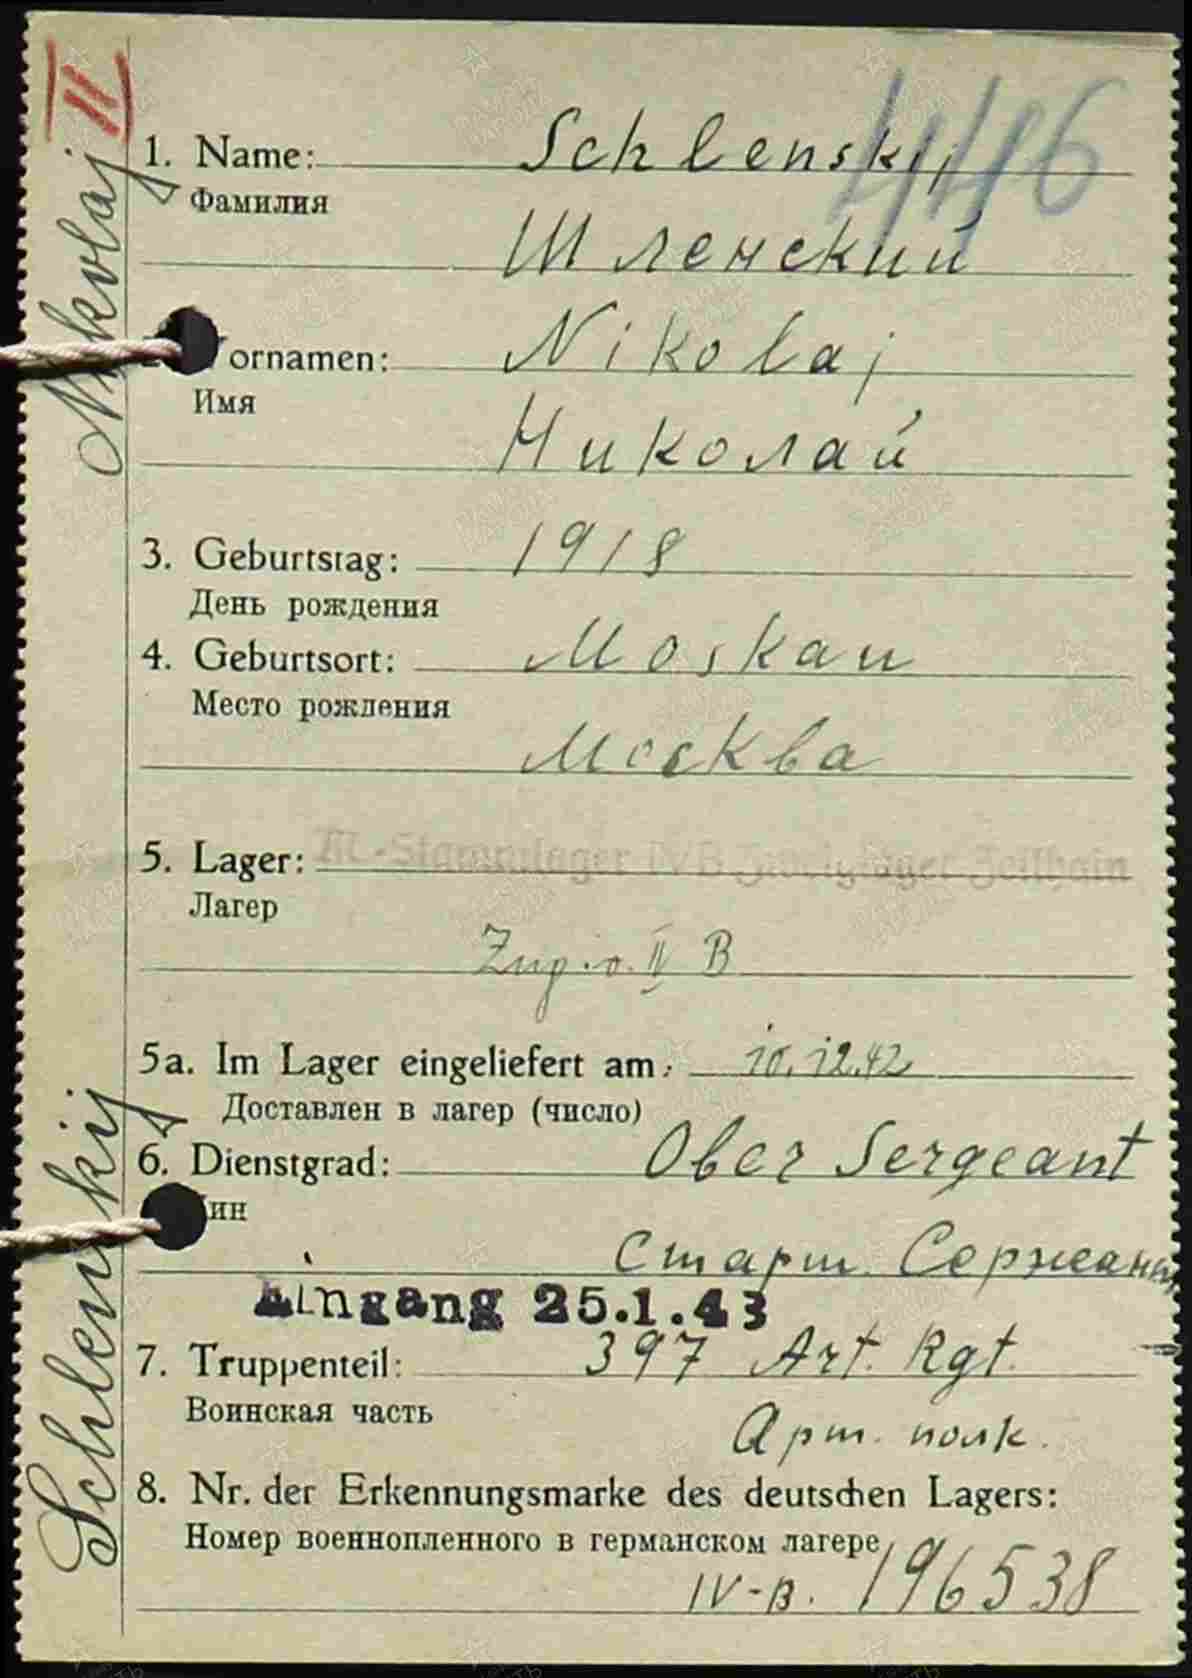 II
446
Schlenskij Nikolaj
1. Name: Schlenskij
Фамилия
Шленский
ornamen: Nikolaj
Имя
Николай
3. Geburtstag: 1918
День рождения
4. Geburtsort: Moskau
Место рождения
Москва
5. Lager: M-Stammlager IV B Zweiglager Zeithain
Лагерь
Zug. v. II B
5a. Im Lager eingeliefert am: 10.12.42
Доставлен в лагерь (число)
6. Dienstgrad: Ober Sergeant
ин
Старш. Сержант
Eingang 25.1.43
7. Truppenteil: 397 Art. Rgt.
Воинская часть
Арт. полк.
8. Nr. der Erkennungsmarke des deutschen Lagers:
Номер военнопленного в германском лагере
IV-B. 196538